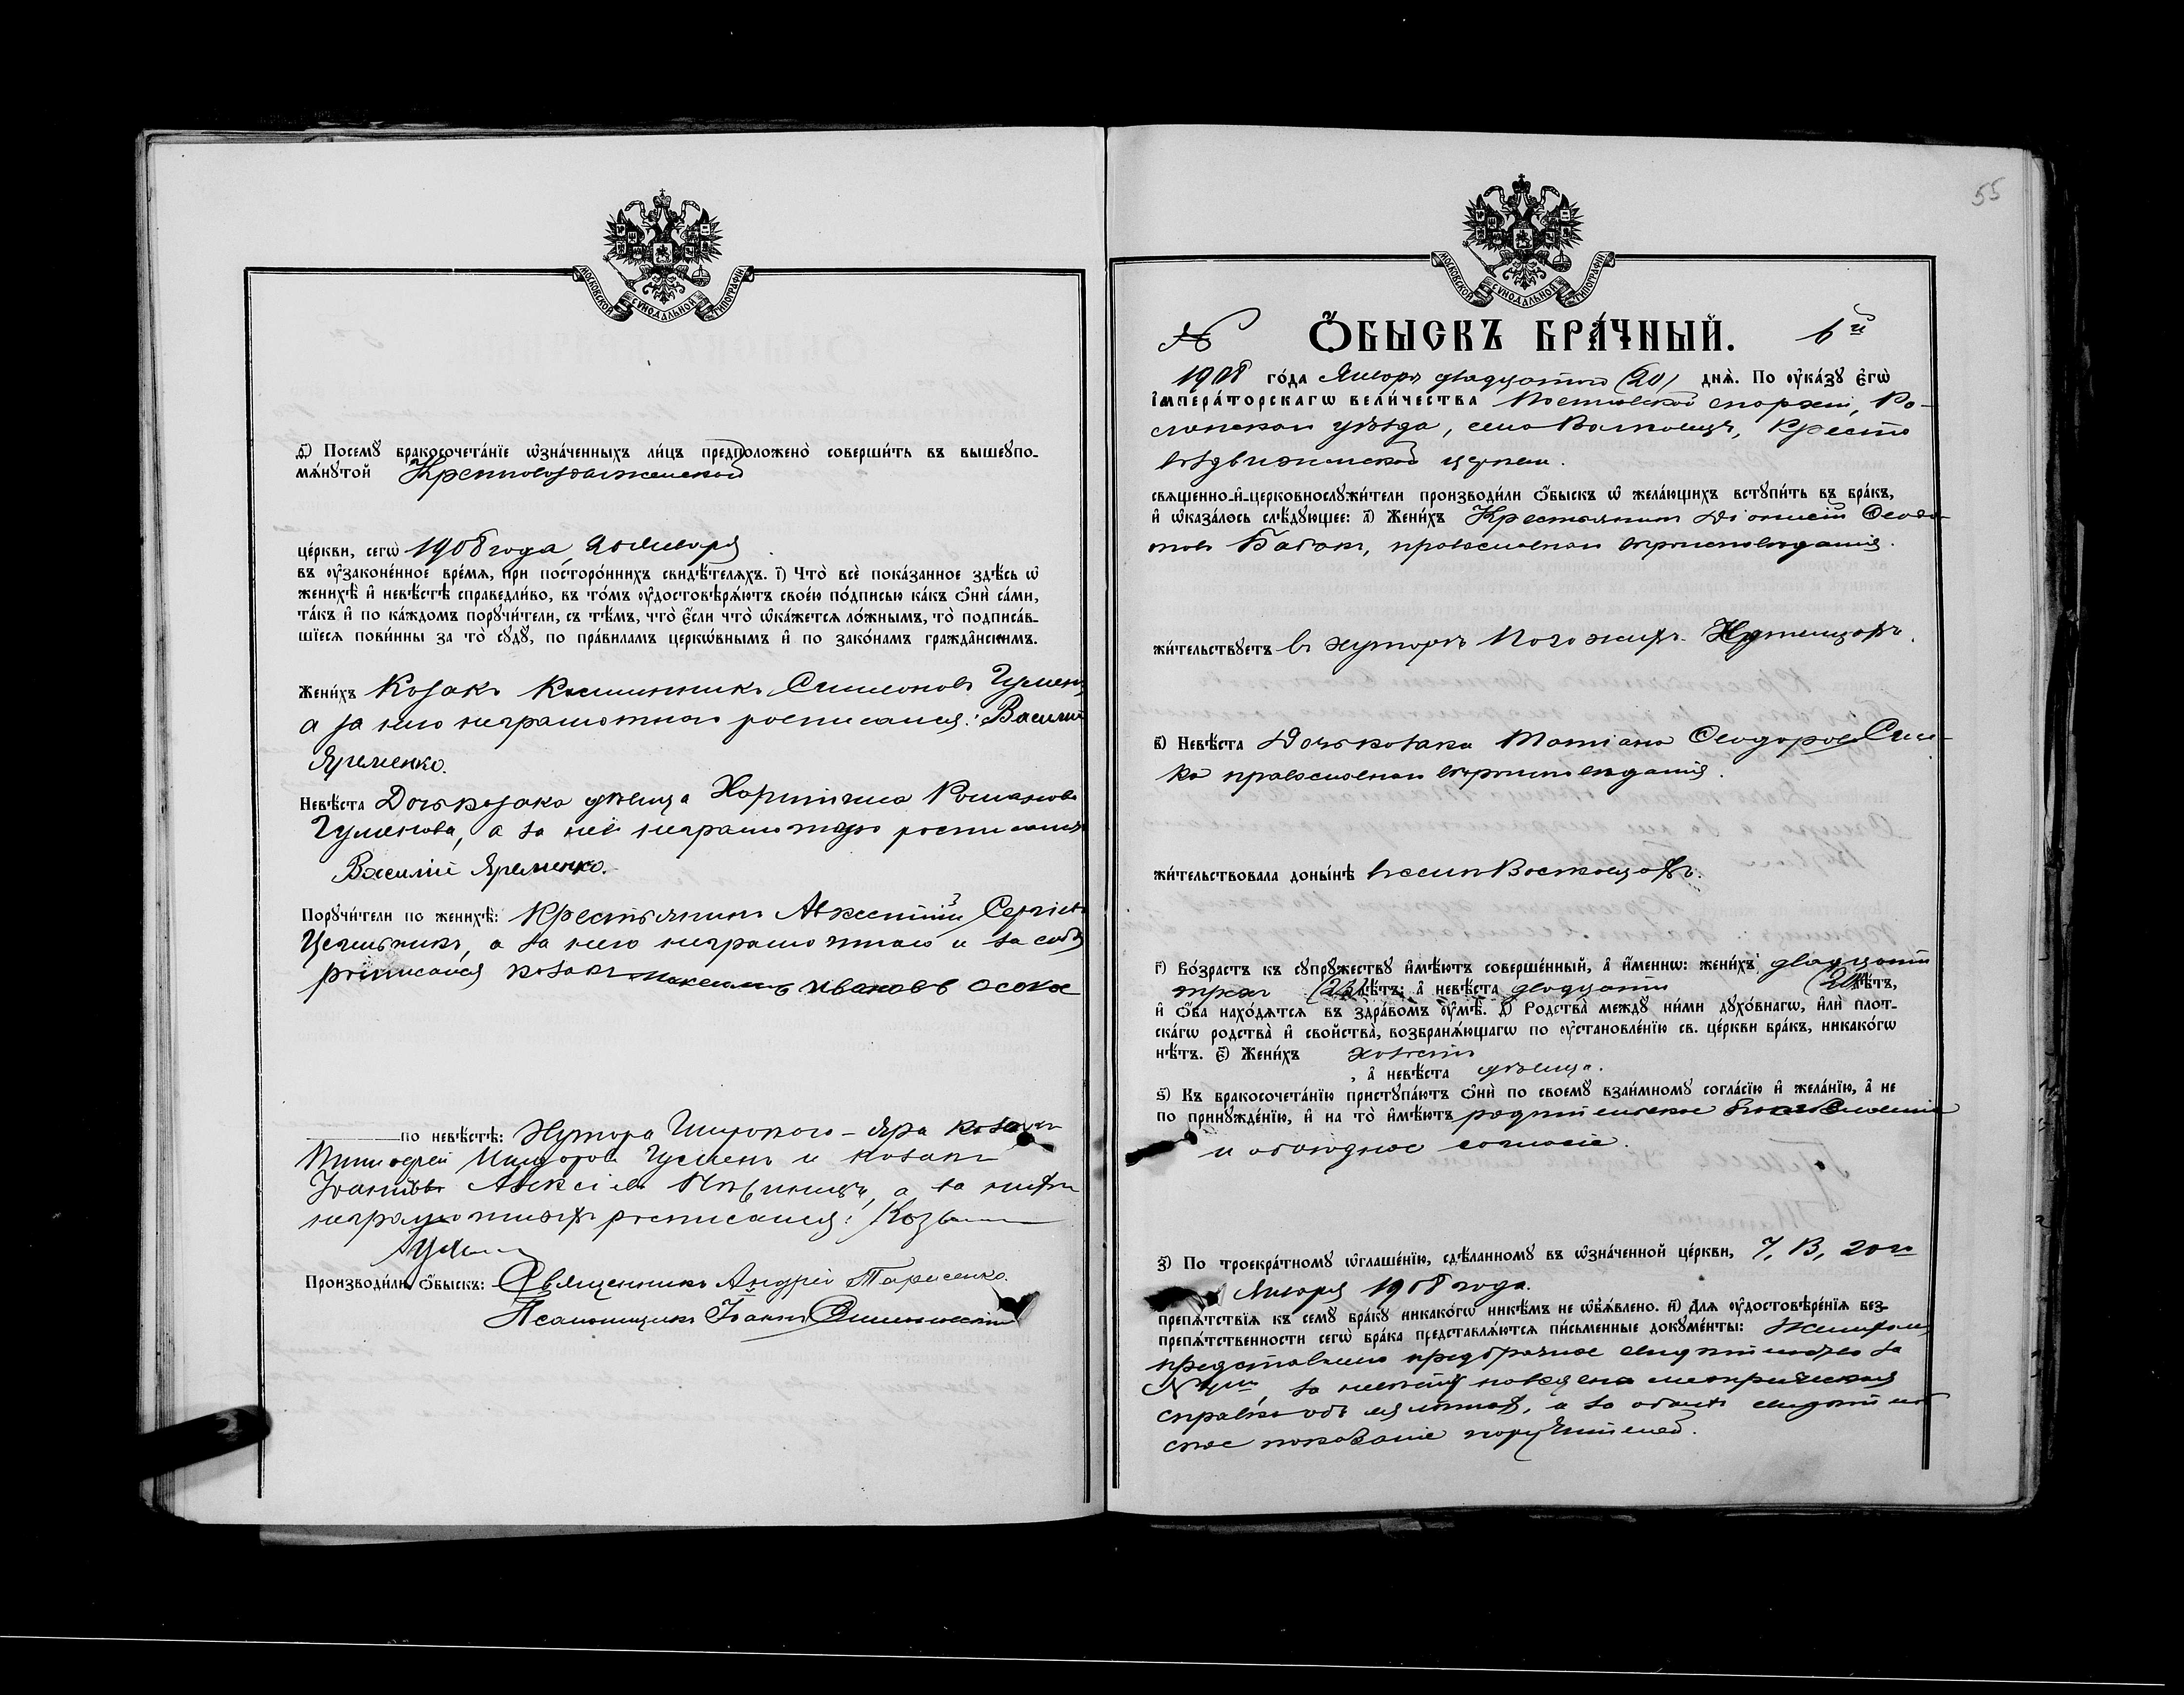 МОСКОВСКОЙ СУНОДАЛЬНОЙ ТИПОГРАФІИ
д҃) Посемꙋ бракосочета́нїе ѡзна́ченныхъ ли́цъ предположено̀ соверши́ть въ вышеꙋпо-
мѧ́нꙋтой Крестовоздвиженской
це́ркви, сегѡ̀ 1908 года 20 Января
въ ᲂу҆законе́нное вре́мѧ, при посторо́ннихъ свидѣ́телѧхъ. і҃) Что̀ всѐ пока́занное здѣ́сь ѡ҆
женихѣ̀ и҆ невѣ́стѣ справедли́во, въ то́мъ ᲂу҆достовѣрѧ́ютъ свое́ю по́дписью ка́къ ѻ҆нѝ са́ми,
та́къ и҆ по ка́ждомъ порꙋчи́тели, съ тѣ́мъ, что̀ є҆́сли что̀ ѡ҆ка́жется ло́жнымъ, то̀ подписа́в-
шїеся пови́нны за то̀ сꙋдꙋ̀, по пра́виламъ церкѡ́внымъ и҆ по зако́намъ гражда̂нскимъ.
Жени́хъ Козакъ Симеоновъ Гумен
а за него неграмотнаго росписался: Василій
Яременко.
Невѣ́ста Дочь козака дѣвица Харитина Романова
Гуменова, а за неё неграмотную росписался
Василій Яременко.
Порꙋчи́тели по женихѣ̀: Крестьянинъ Авксентій Сергіевъ
а за него неграмотнаго и за себя
росписался козакъ Максимъ Ивановъ Осока
по невѣ́стѣ: Хутора Широкого-Яра козаки
Тимофей Гуменъ и козакъ
Алексіевъ а за нихъ
неграмотныхъ росписался: Козакъ
Производи́ли ѻ҆́быскъ: Священникъ Андрей Тарасенко.
Псаломщикъ Іоаннъ
55
МОСКОВСКОЙ СУНОДАЛЬНОЙ ТИПОГРАФІИ
№ Ѻ҆́БЫСКЪ БРА́ЧНЫЙ. 6й
1908 го́да Января двадцатого (20) днѧ̀. По ᲂу҆ка́зꙋ є҆гѡ̀
і҆мпера́торскагѡ вели́чества Полтавской епархіи, Ро-
менскаго уѣзда, села Кресто
воздвиженской церкви.
свѧщенно-и҆-церковнослꙋжи́тели производи́ли ѻ҆́быскъ ѡ҆ жела́ющихъ встꙋпи́ть въ бра́къ,
и҆ ѡ҆каза́лось слѣ́дꙋющее: а҃) Жени́хъ Крестьянинъ Діонисій Ѳеодо
товъ Бабакъ, православнаго вѣроисповѣданія.
жи́тельствꙋетъ въ хуторѣ
в҃) Невѣ́ста Дочь козака Татіана Ѳеодорова
ка православнаго вѣроисповѣданія.
жи́тельствовала доны́нѣ въ селѣ
г҃) Во́зрастъ къ сꙋпрꙋ́жествꙋ и҆мѣ́ютъ соверше́нный, а҆ и҆́меннѡ: жени́хъ двадцати
трехъ (23) лѣ́тъ; а҆ невѣ́ста двадцати (20) лѣ́тъ,
и҆ ѻ҆́ба нахо́дѧтсѧ въ здра́вомъ ᲂу҆мѣ̀. д҃) Родства̀ междꙋ ни́ми дꙋхо́внагѡ, и҆лѝ плот-
ска́гѡ родства̀ и҆ свойства̀, возбранѧ́ющагѡ по ᲂу҆становле́нїю св. це́ркви бра́къ, никако́гѡ
нѣ́тъ. є҃) Жени́хъ холостъ
, а҆ невѣ́ста дѣвица.
ѕ҃) Къ бракосочета́нїю пристꙋпа́ютъ ѻ҆нѝ по своемꙋ̀ взаи́мномꙋ согла́сїю и҆ жела́нїю, а҆ не
по принꙋжде́нїю, и҆ на то̀ и҆мѣ́ютъ родительское благословеніе
и обоюдное согласіе.
з҃) По троекра́тномꙋ ѡ҆глаше́нїю, сдѣ́ланномꙋ въ ѡ҆зна́ченной це́ркви, 7, 13, 20го
Января 1908 года.
препѧ́тствїѧ къ семꙋ̀ бра́кꙋ никако́гѡ никѣ́мъ не ѡ҆б̾ѧ́влено. и҃) Для ᲂу҆достовѣре́нїѧ без-
препѧ́тственности сегѡ̀ бра́ка представлѧ́ются пи́сьменные докꙋме́нты: Женихомъ
представлено предбрачное свидѣтельство за
№ за невѣсту наведена метрическая
справка объ ея лѣтахъ, а за обоихъ свидѣтель
ское показаніе поручителей.